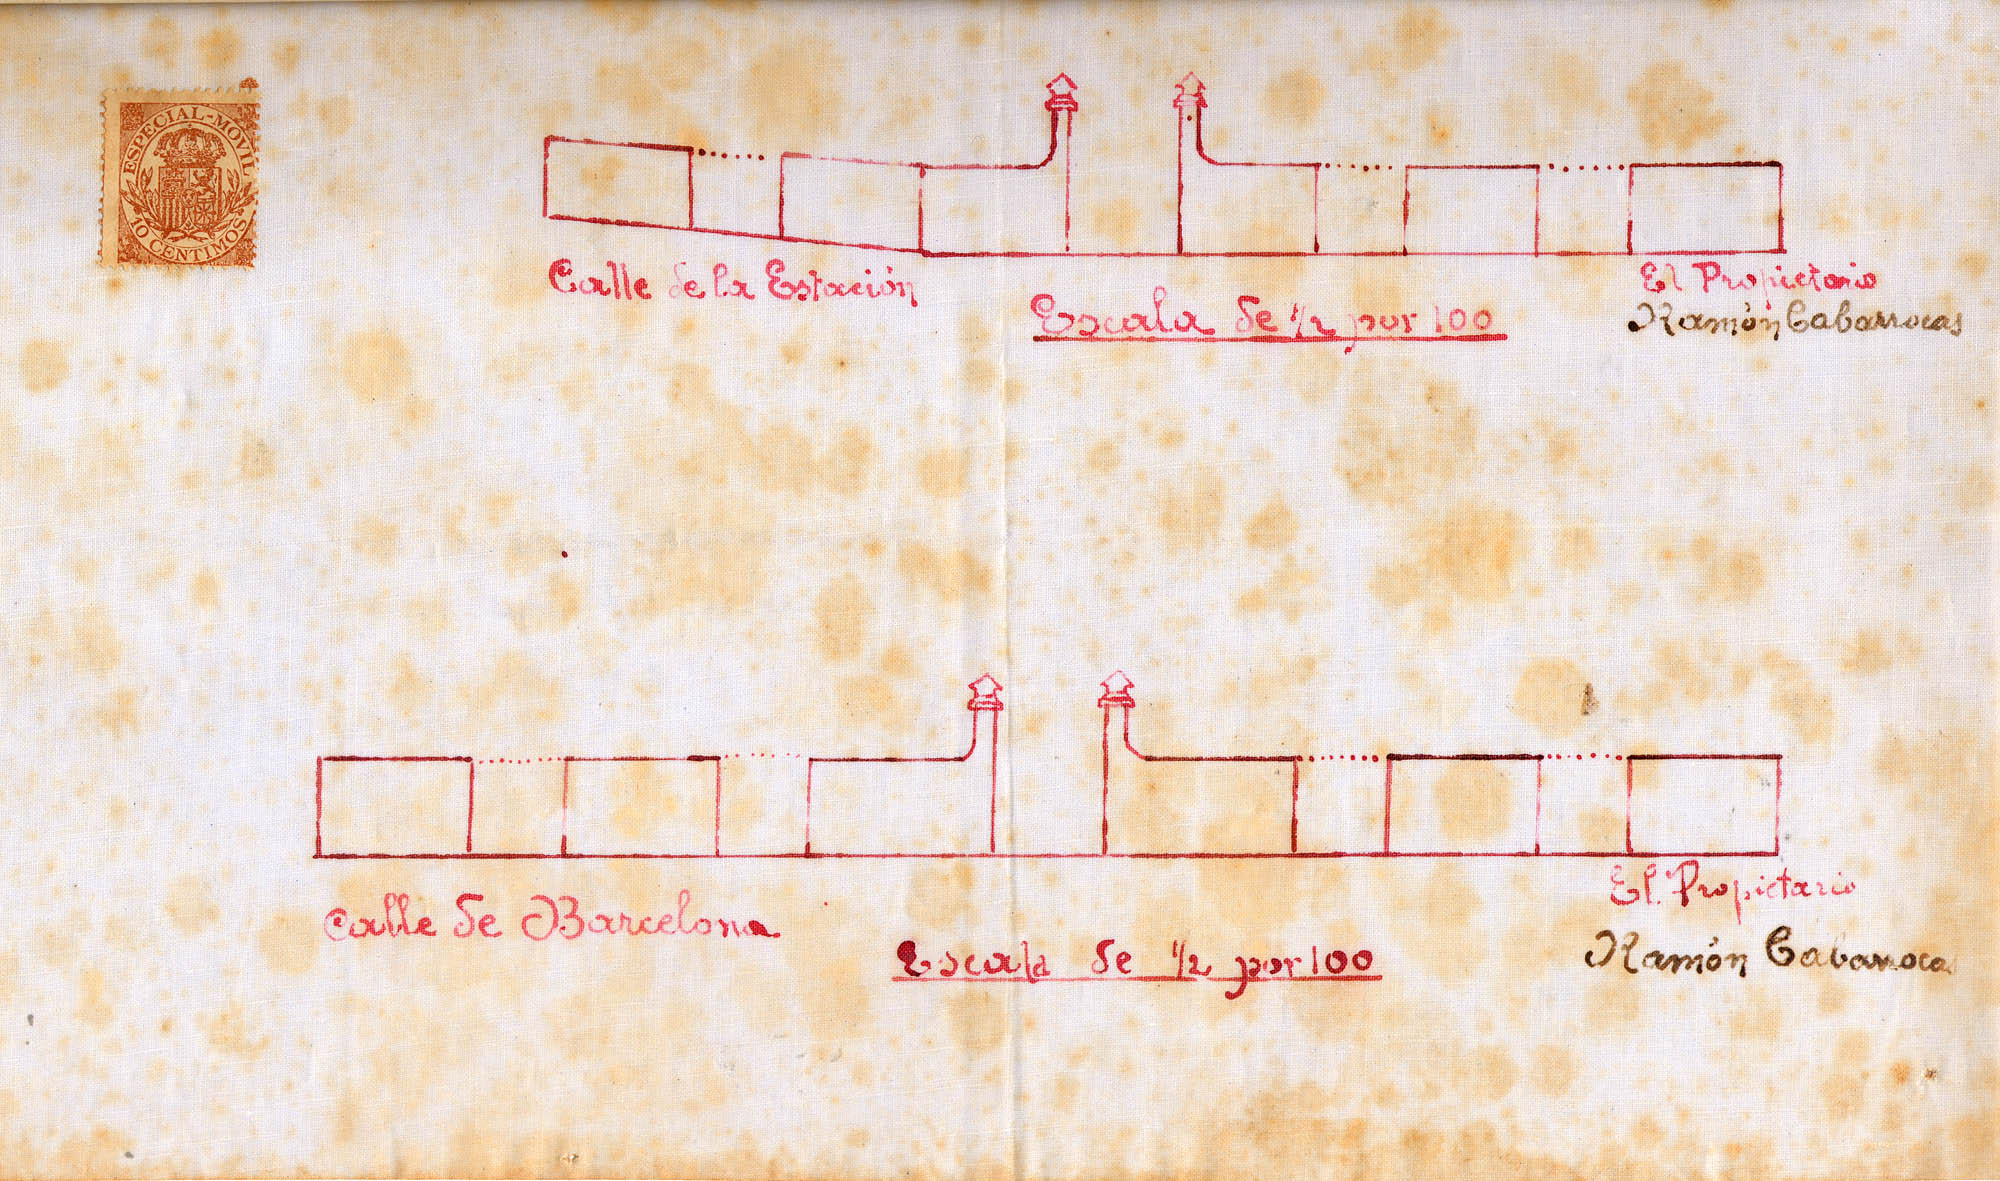 ESPECIAL-MOVIL
10 CENTIMOS
Calle de la Estación
Escala de 1/2 por 100
El Propietario
Ramón Cabarrocas
Calle de Barcelona
Escala de 1/2 por 100
El Propietario
Ramón Cabarrocas